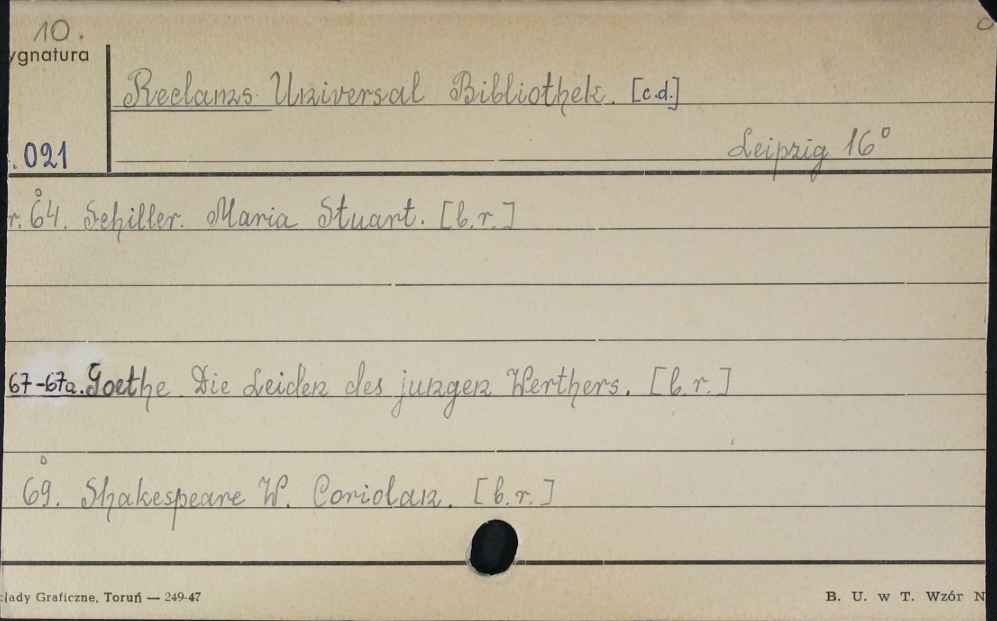 10.
ygnatura
Reclams Universal Bibliothek. [c.d.]
.021
Leipzig 16°
r. 64. Schiller. Maria Stuart. [b.r.]
67-67a. Goethe Die Leiden des jungen Werthers. [b.r.]
69. Shakespeare W. Coriolan. [b.r.]
łady Graficzne, Toruń — 249-47
B. U. w T. Wzór N